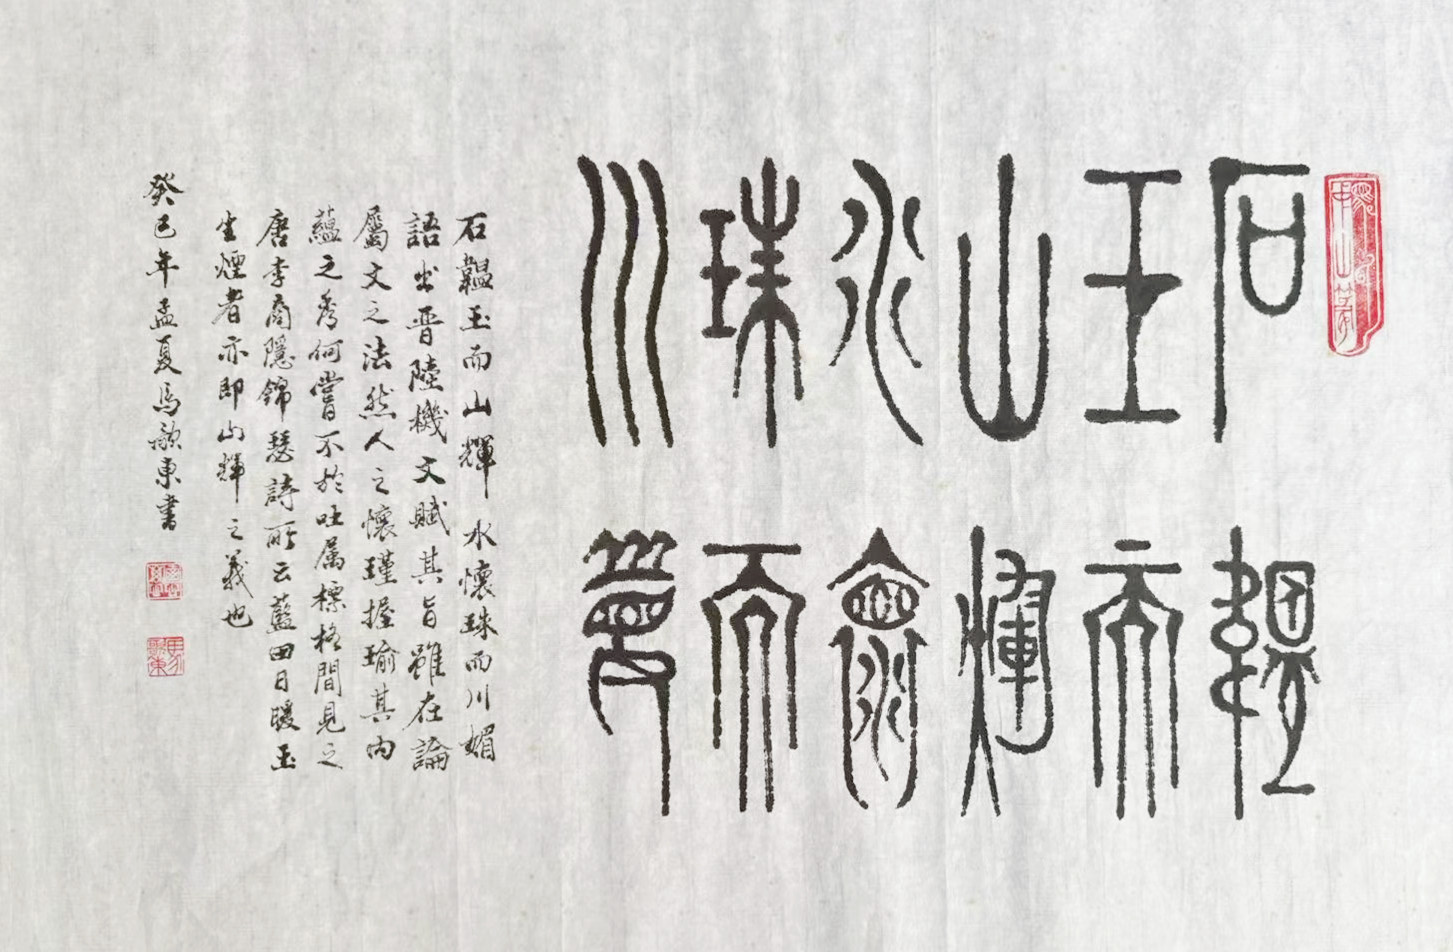 石韞
玉而
山煇
水褱
珠而
川媚
石韞玉而山輝 水懷珠而川媚
語出晉陸機文賦其旨雖在論
屬文之法然人之懷瑾握瑜其內
蘊之秀何嘗不於吐属標格間見之
唐李商隱錦瑟詩所云藍田日暖玉
生煙者亦即山輝之義也
癸巳年孟夏馬歌東書